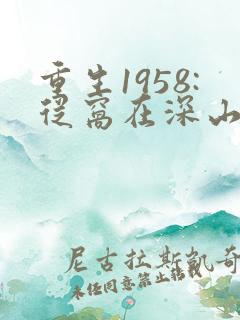 重生1958:
从窝在深山
尼古拉斯凯奇
未经同意禁止转载